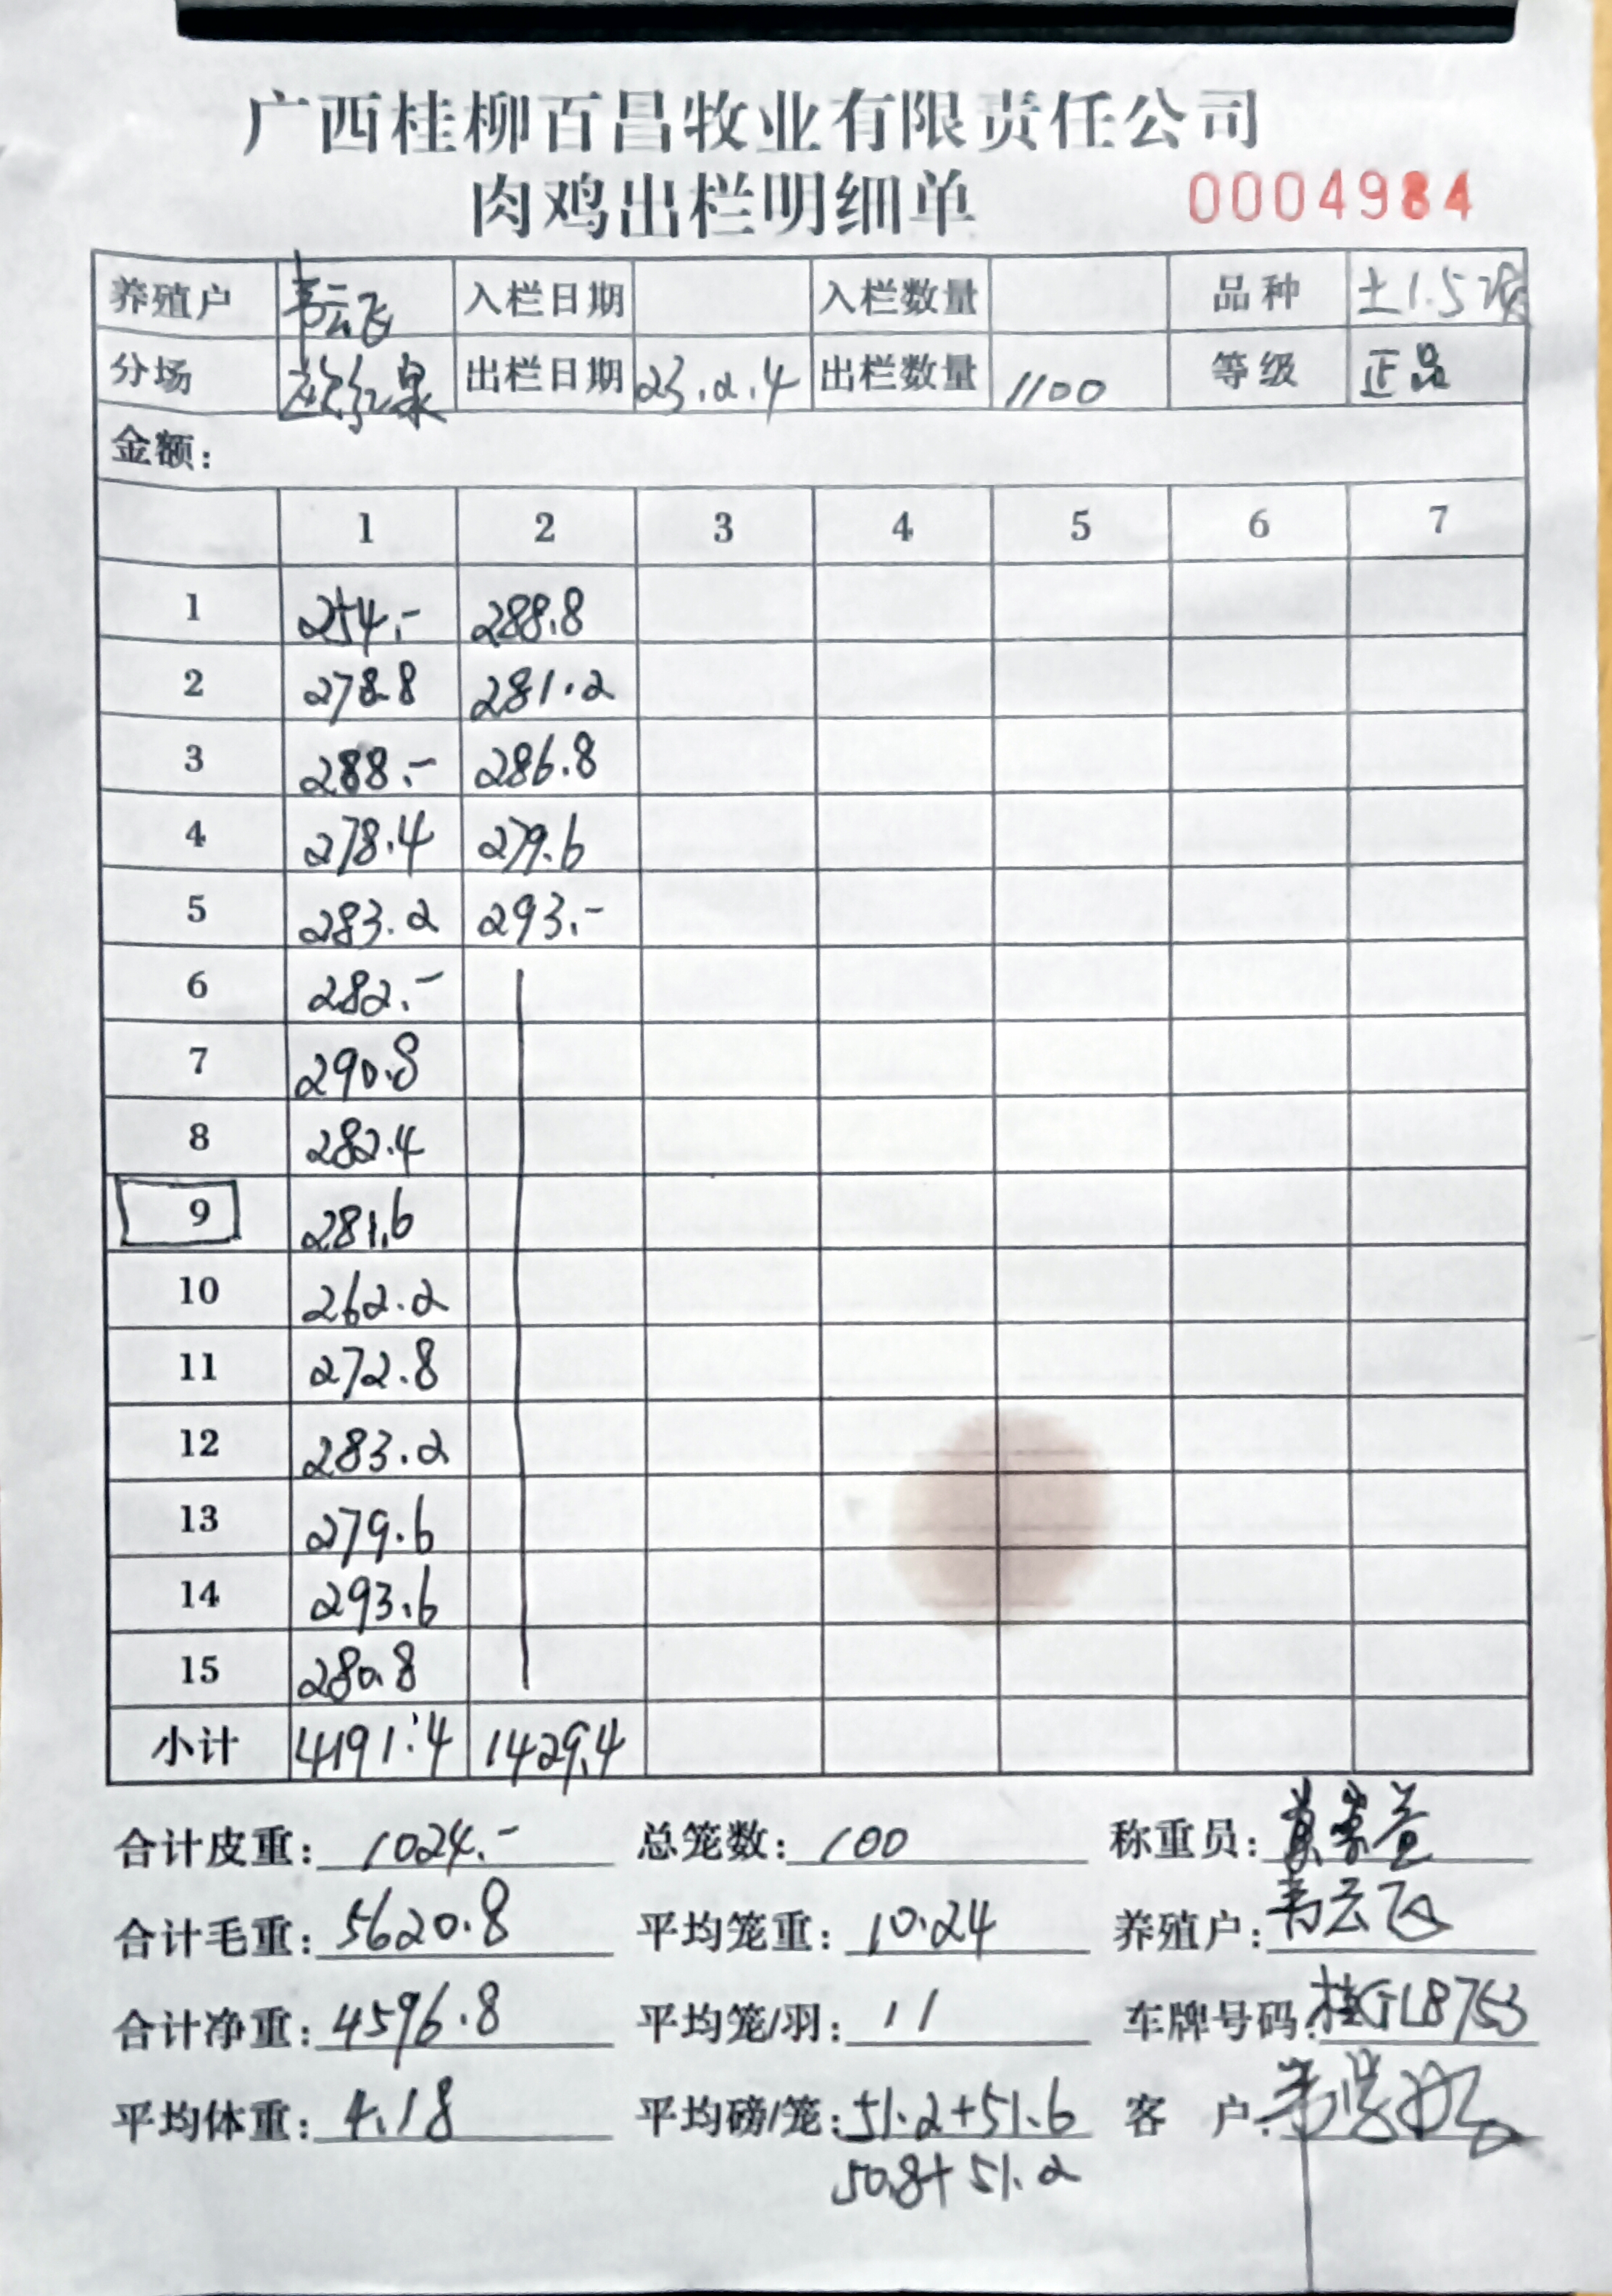 广西桂柳百昌牧业有限责任公司
肉鸡出栏明细单 0004984
养殖户 韦云飞 入栏日期 入栏数量 品种 土1.5
分场 出栏日期 23.2.4 出栏数量 1100 等级 正品
金额：
1 2 3 4 5 6 7
1 254.- 288.8
2 278.8 281.2
3 288.- 286.8
4 278.4 279.6
5 283.2 293.-
6 282.-
7 290.8
8 282.4
9 281.6
10 262.2
11 272.8
12 283.2
13 279.6
14 293.6
15 280.8
小计 4191.4 1429.4
合计皮重：1024.- 总笼数：100 称重员：
合计毛重：5620.8 平均笼重：10.24 养殖户：韦云飞
合计净重：4596.8 平均笼/羽：11 车牌号码：桂GL8753
平均体重：4.18 平均磅/笼：51.2+51.6 客 户：
50.8+51.2